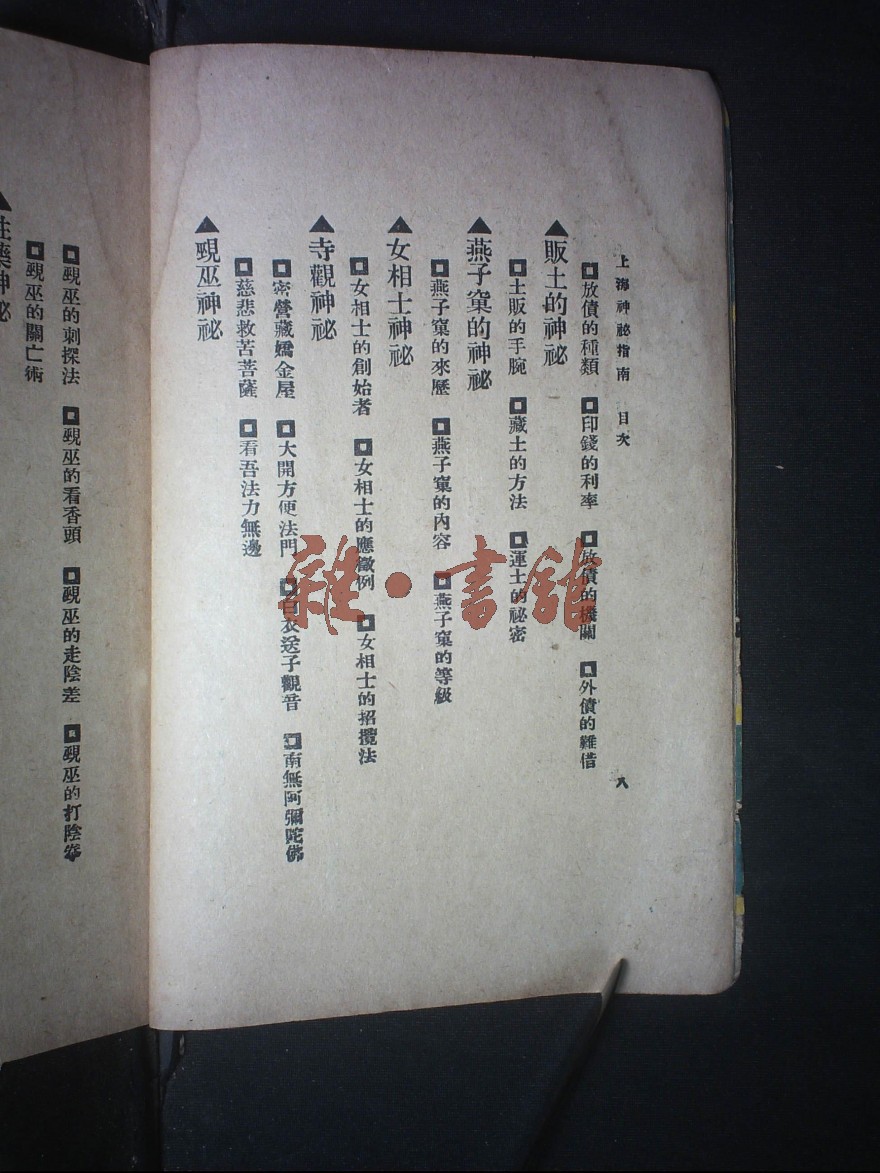 上海神祕指南 目次 八
放債的種類 印錢的利率 放債的機關 外債的難借
▲販土的神祕
土販的手腕 藏土的方法 運土的祕密
▲燕子窠的神祕
燕子窠的來歷 燕子窠的內容 燕子窠的等級
▲女相士神祕
女相士的創始者 女相士的應徵例 女相士的招攬法
▲寺觀神祕
密營藏嬌金屋 大開方便法門 白衣送子觀音 南無阿彌陀佛
慈悲救苦菩薩 看吾法力無邊
▲覡巫神祕
覡巫的刺探法 覡巫的看香頭 覡巫的走陰差 覡巫的打陰
覡巫的關亡術
藥神祕
雜·書館